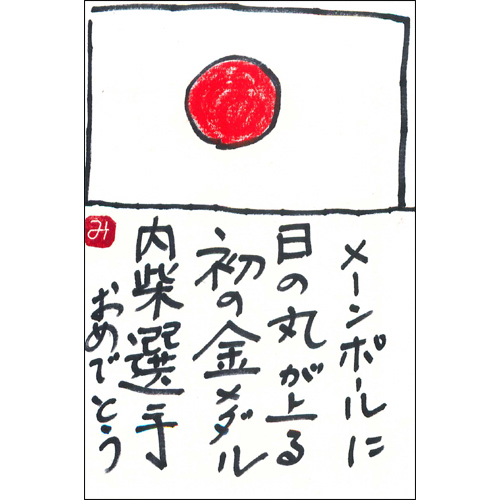 メーンポールに
日の丸が上る
初の金メダル
内柴選手
おめでとう
み